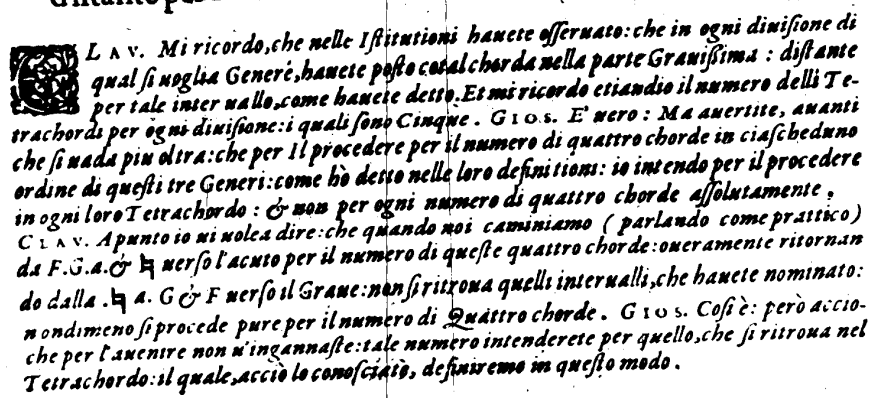 CLAV. Mi ricordo, che nelle Iſtitutioni hauete oſſeruato: che in ogni diuiſione di
qual ſi uoglia Genere, hauete poſto cotal chorda nella parte Grauiſſima: diſtante
per tale interuallo, come hauete detto. Et mi ricordo etiandio il numero delli Te-
trachordi per ogni diuiſione: i quali ſono Cinque. GIOS. E' uero: Ma auertite, auanti
che ſi uada piu oltra: che per Il procedere per il numero di quattro chorde in ciaſcheduno
ordine di queſti tre Generi: come hò detto nelle loro definitioni: io intendo per il procedere
in ogni loro Tetrachordo: & non per ogni numero di quattro chorde aſſolutamente.
CLAV. Apunto io ui uolea dire: che quando noi caminiamo (parlando come prattico)
da F. G. a. & ♮ uerſo l'acuto per il numero di queſte quattro chorde: oueramente ritornan
do dalla .♮ a. G & F uerſo il Graue: non ſi ritroua quelli interualli, che hauete nominato:
nondimeno ſi procede pure per il numero di Quattro chorde. GIOS. Coſi è: però accio-
che per l'auenire non u'ingannaſte: tale numero intenderete per quello, che ſi ritroua nel
Tetrachordo: il quale, acciò lo conoſciatò, definiremo in queſto modo.